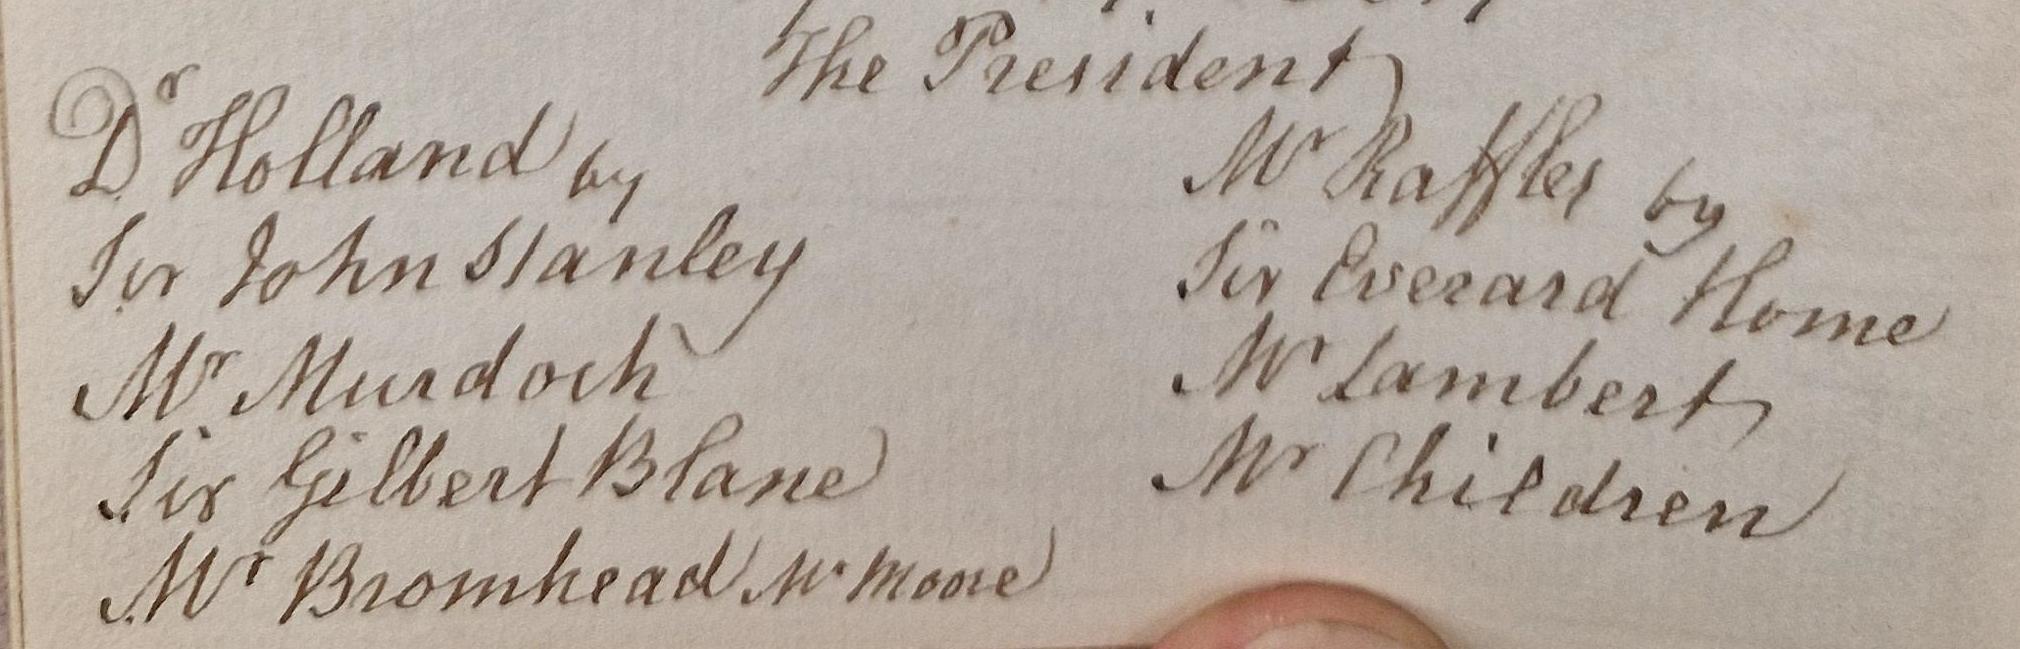 The President
Dr Holland by
Sir John Stanley
Mr Murdoch
Sir Gilbert Blane
Mr Bromhead Mr Moore
Mr Raffles by
Sir Everard Home
Mr Lambert
Mr Children